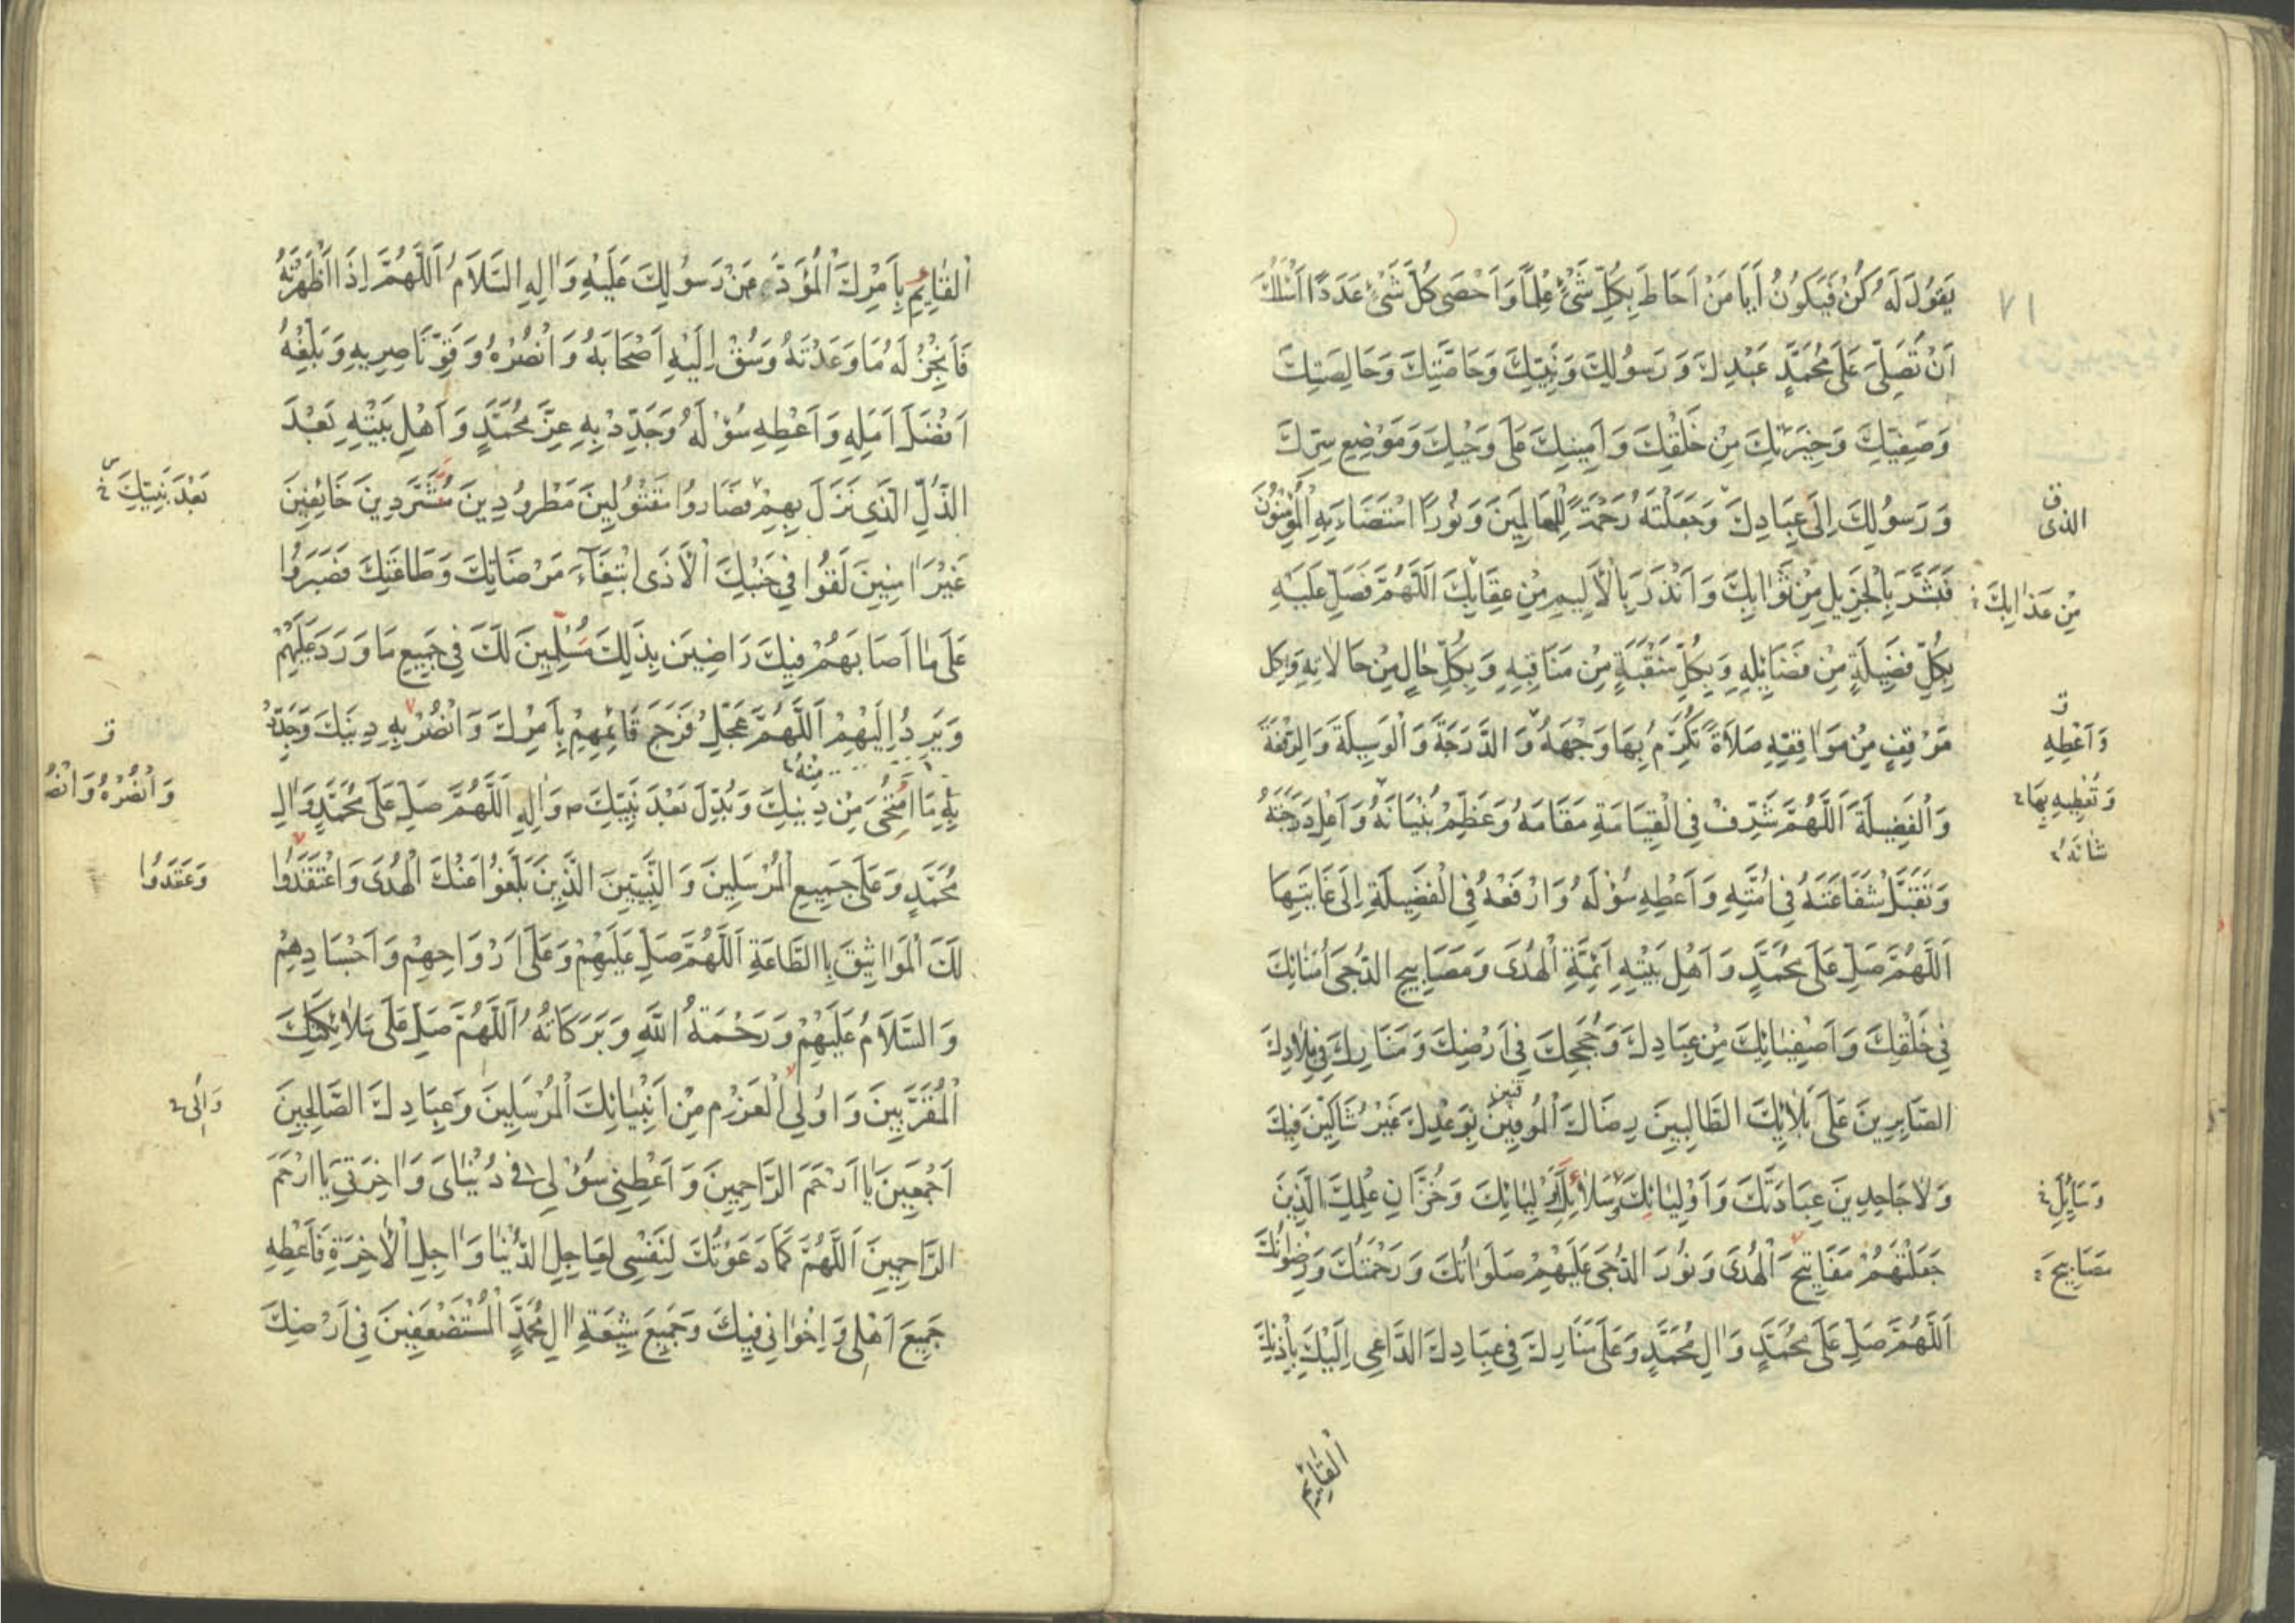 يَقُولَ لَهُ كُنْ فَيَكُونُ أَيَا مَنْ اَحَاطَ بِكُلِّ شَيْءٍ عِلْمًا وَاَحْصَى كُلَّ شَيْءٍ عَدَدًا اَسْئَلُكَ
٧١
اَنْ تُصَلِّيَ عَلَى مُحَمَّدٍ عَبْدِكَ وَ رَسُولِكَ وَنَبِيِّكَ وَخَاصَّتِكَ وَخَالِصَتِكَ
وَصَفِيِّكَ وَخِيَرَتِكَ مِنْ خَلْقِكَ وَاَمِينِكَ عَلَى وَحْيِكَ وَمَوْضِعِ سِرِّكَ
وَ رَسُولِكَ اِلَى عِبَادِكَ وَجَعَلْتَهُ رَحْمَةً لِلْعَالَمِينَ وَنُورًا اسْتَضَاءَ بِهِ الْمُؤْمِنُونَ
الذى
فَبَشَّرَ بِالْجَزِيلِ مِنْ ثَوَابِكَ وَاَنْذَرَ بِالْاَلِيمِ مِنْ عِقَابِكَ اَللّٰهُمَّ فَصَلِّ عَلَيْهِ
مِنْ عَذَابِكَ
بِكُلِّ فَضِيلَةٍ مِنْ فَضَائِلِهِ وَبِكُلِّ مَنْقَبَةٍ مِنْ مَنَاقِبِهِ وَبِكُلِّ حَالٍ مِنْ حَالَاتِهِ وَبِكُلِّ
مَوْقِفٍ مِنْ مَوَاقِفِهِ صَلَاةً تُكْرِمُ بِهَا وَجْهَهُ وَالدَّرَجَةَ وَالْوَسِيلَةَ وَالرِّفْعَةَ
وَاَعْطِهِ
وَالْفَضِيلَةَ اَللّٰهُمَّ شَرِّفْ فِى الْقِيَامَةِ مَقَامَهُ وَعَظِّمْ بُنْيَانَهُ وَاَعْلِ دَرَجَتَهُ
وَتُعْطِيهِ بِهَا
شَانَهُ
وَتَقَبَّلْ شَفَاعَتَهُ فِى اُمَّتِهِ وَاَعْطِهِ سُؤْلَهُ وَارْفَعْهُ فِى الْفَضِيلَةِ اِلَى غَايَتِهَا
اَللّٰهُمَّ صَلِّ عَلَى مُحَمَّدٍ وَاَهْلِ بَيْتِهِ اَئِمَّةِ الْهُدَى وَمَصَابِيحِ الدُّجَى اُمَنَائِكَ
فِى خَلْقِكَ وَاَصْفِيَائِكَ مِنْ عِبَادِكَ وَحُجَجِكَ فِى اَرْضِكَ وَمَنَارِكَ فِى بِلَادِكَ
الصَّابِرِينَ عَلَى بَلَائِكَ الطَّالِبِينَ رِضَاكَ الْمُوفِينَ بِوَعْدِكَ غَيْرَ شَاكِّينَ فِيكَ
وَلَا جَاحِدِينَ عِبَادَتَكَ وَاَوْلِيَائِكَ وَسَلَائِلِ اَوْلِيَائِكَ وَخُزَّانِ عِلْمِكَ الَّذِينَ
وَسَايِلِ
جَعَلْتَهُمْ مَفَاتِيحَ الْهُدَى وَنُورَ الدُّجَى عَلَيْهِمْ صَلَوَاتُكَ وَرَحْمَتُكَ وَرِضْوَانُكَ
مَصَابِيحَ
اَللّٰهُمَّ صَلِّ عَلَى مُحَمَّدٍ وَالِ مُحَمَّدٍ وَعَلَى مَنَارِكَ فِى عِبَادِكَ الدَّاعِى اِلَيْكَ بِاِذْنِكَ
الْقَائِمِ
الْقَائِمِ بِاَمْرِكَ الْمُؤَدِّي عَنْ رَسُولِكَ عَلَيْهِ وَالِهِ السَّلَامُ اَللّٰهُمَّ اِذَا اَظْهَرْتَهُ
فَاَنْجِزْ لَهُ مَا وَعَدْتَهُ وَسُقْ اِلَيْهِ اَصْحَابَهُ وَانْصُرْهُ وَقَوِّ نَاصِرِيهِ وَبَلِّغْهُ
اَفْضَلَ اَمَلِهِ وَاَعْطِهِ سُؤْلَهُ وَجَدِّدْ بِهِ عِزَّ مُحَمَّدٍ وَاَهْلِ بَيْتِهِ بَعْدَ
الذُّلِّ الَّذِى نَزَلَ بِهِمْ فَصَارُوا مَقْتُولِينَ مَطْرُودِينَ مُشَرَّدِينَ خَائِفِينَ
بَعْدَ نَبِيِّكَ
غَيْرَ اٰمِنِينَ لَقُوا فِى جَنْبِكَ الْاَذَى ابْتِغَاءَ مَرْضَاتِكَ وَطَاعَتِكَ فَصَبَرُوا
عَلَى مَا اَصَابَهُمْ فِيكَ رَاضِيَن بِذَلِكَ مُسَلِّمِينَ لَكَ فِى جَمِيعِ مَا وَرَدَ عَلَيْهِمْ
وَيَرِدُ اِلَيْهِمْ اَللّٰهُمَّ عَجِّلْ فَرَجَ قَائِمِهِمْ بِاَمْرِكَ وَانْصُرْ بِهِ دِينَكَ وَجَدِّدْ
بِهِ مَا امْتَحَى مِنْ دِينِكَ وَبُدِّلَ بَعْدَ نَبِيِّكَ ص وَالِهِ اَللّٰهُمَّ صَلِّ عَلَى مُحَمَّدٍ وَالِ
مِنْهُ
وَانْصُرْهُ وَانْصُرْ
مُحَمَّدٍ وَعَلَى جَمِيعِ الْمُرْسَلِينَ وَالنَّبِيِّينَ الَّذِينَ بَلَّغُوا عَنْكَ الْهُدَى وَاعْتَقَدُوا
وَعَقَدُوا
لَكَ الْمَوَاثِيقَ بِاالطَّاعَةِ اَللّٰهُمَّ صَلِّ عَلَيْهِمْ وَعَلَى اَرْوَاحِهِمْ وَاَجْسَادِهِمْ
وَالسَّلَامُ عَلَيْهِمْ وَرَحْمَةُ اللّٰهِ وَبَرَكَاتُهُ اَللّٰهُمَّ صَلِّ عَلَى مَلَائِكَتِكَ
الْمُقَرَّبِينَ وَاُولِي الْعَزْمِ مِنْ اَنْبِيَائِكَ الْمُرْسَلِينَ وَعِبَادِكَ الصَّالِحِينَ
وَاُلى
اَجْمَعِينَ يَا اَرْحَمَ الرَّاحِمِينَ وَاَعْطِنِى سُؤْلِى فى دُنْيَاىَ وَاٰخِرَتِى يَا اَرْحَمَ
الرَّاحِمِينَ اَللّٰهُمَّ كَمَا دَعَوْتُكَ لِنَفْسِى لِعَاجِلِ الدُّنْيَا وَاٰجِلِ الْاٰخِرَةِ فَاَعْطِهِ
جَمِيعَ اَهْلِى وَاِخْوَانِى فِيكَ وَجَمِيعَ شِيعَةِ اٰلِ مُحَمَّدٍ الْمُسْتَضْعَفِينَ فِى اَرْضِكَ